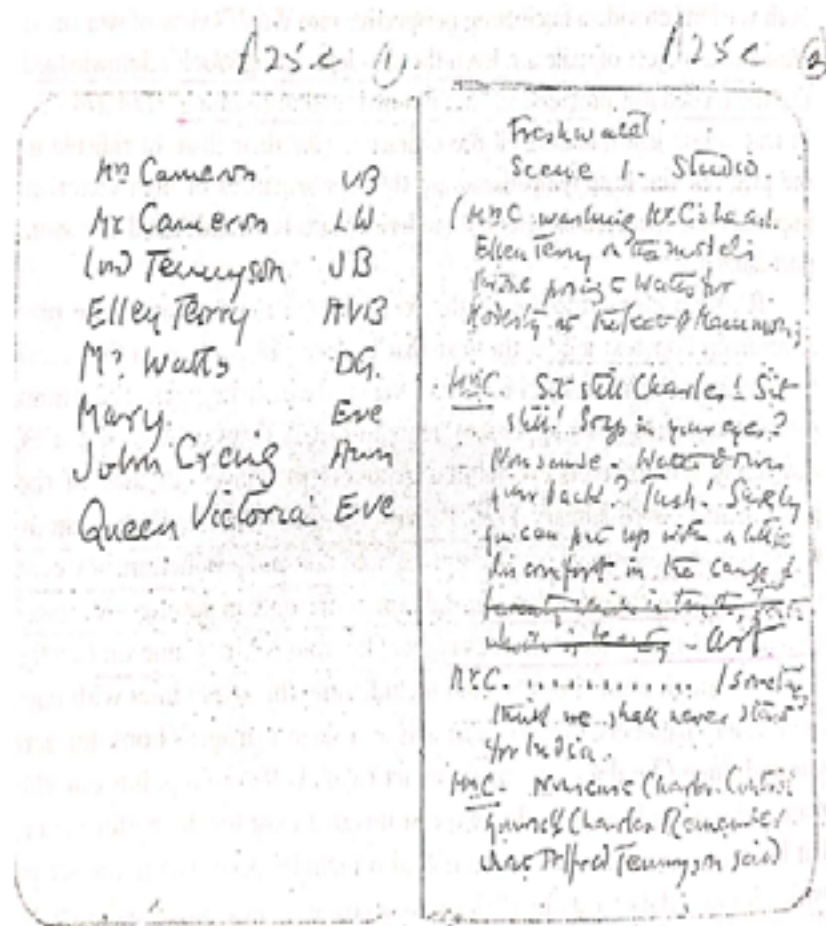 A25c (1)
Mrs Cameron VB
Mr Cameron LW
Tennyson JB
Ellen Terry AVB
Mr Watts DG.
Mary Eve
John Craig Ann
Queen Victoria Eve
A25c
Freshwater
Scene 1. Studio.
(Mrs C. washing Mr C's head.
Ellen Terry on the model's
throne posing to Watts for
Modesty at the feet of Mammon)
Mrs C. Sit still Charles! Sit
still! Soap in your eyes?
Nonsense. Water down
your back? Tush! Surely
you can put up with a little
discomfort in the cause of
art
Mr C. ............
think we shall never start
for India.
Mrs C. Nonsense Charles. Control
yourself Charles. Remember
what Alfred Tennyson said